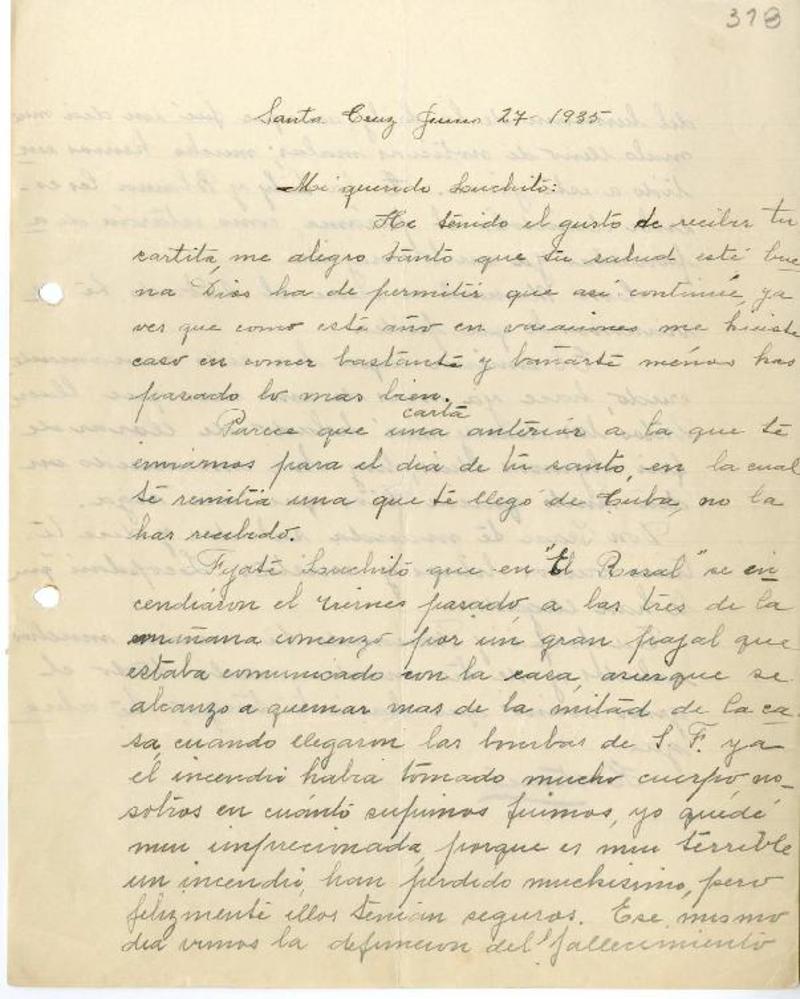 318
Santa Cruz Junio 27- 1935
Mi querido Luchito:
He tenido el gusto de recibir tu
cartita, me alegro tanto que tu salud esté bue
na Dios ha de permitir que así continué, ya
ves que como esté año en vacaciones me hiciste
caso en comer bastante y bañarte menos has
pasado lo mas bien.
carta
Parece que una anterior a la que te
enviamos para el dia de tu santo, en la cual
te remitia una que te llegó de Cuba, no la
has recibido.
Fijate Luchito que en "El Rosal" se in
cendiaron el viernes pasado, a las tres de la
mañana comenzó por un gran pajal que
estaba comunicado con la casa, asiesque se
alcanzo a quemar mas de la mitad de la ca
sa, cuando llegaron las bombas de S. F. ya
el incendio habia tomado mucho cuerpo no_
sotros en cuánto supimos fuimos, yo quedé
muy imprecionada, porque es muy terrible
un incendio, han perdido muchisimo, pero
felizmente ellos tenian seguros. Ese mismo
dia vimos la defuncion del fallecimiento